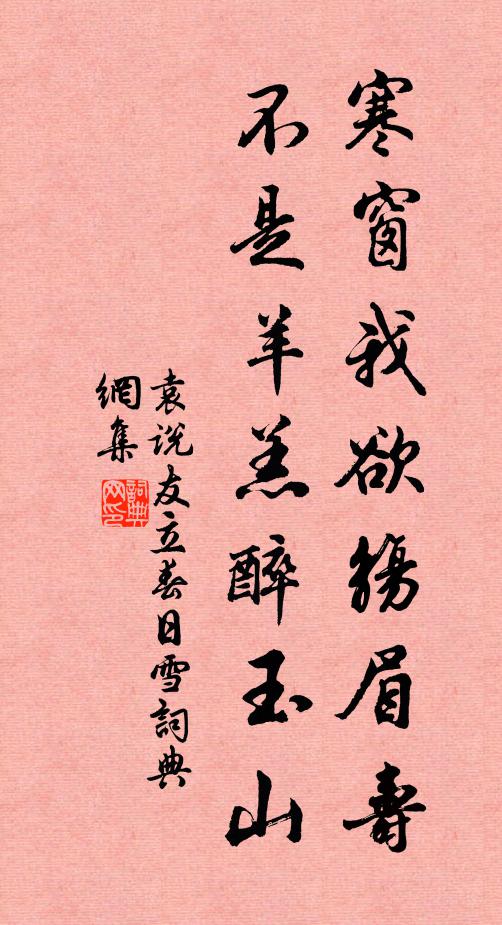 寒窗我欲觴眉壽
不是羊羔醉玉山
袁説友立春日雪詞典
網集
詞典
网印